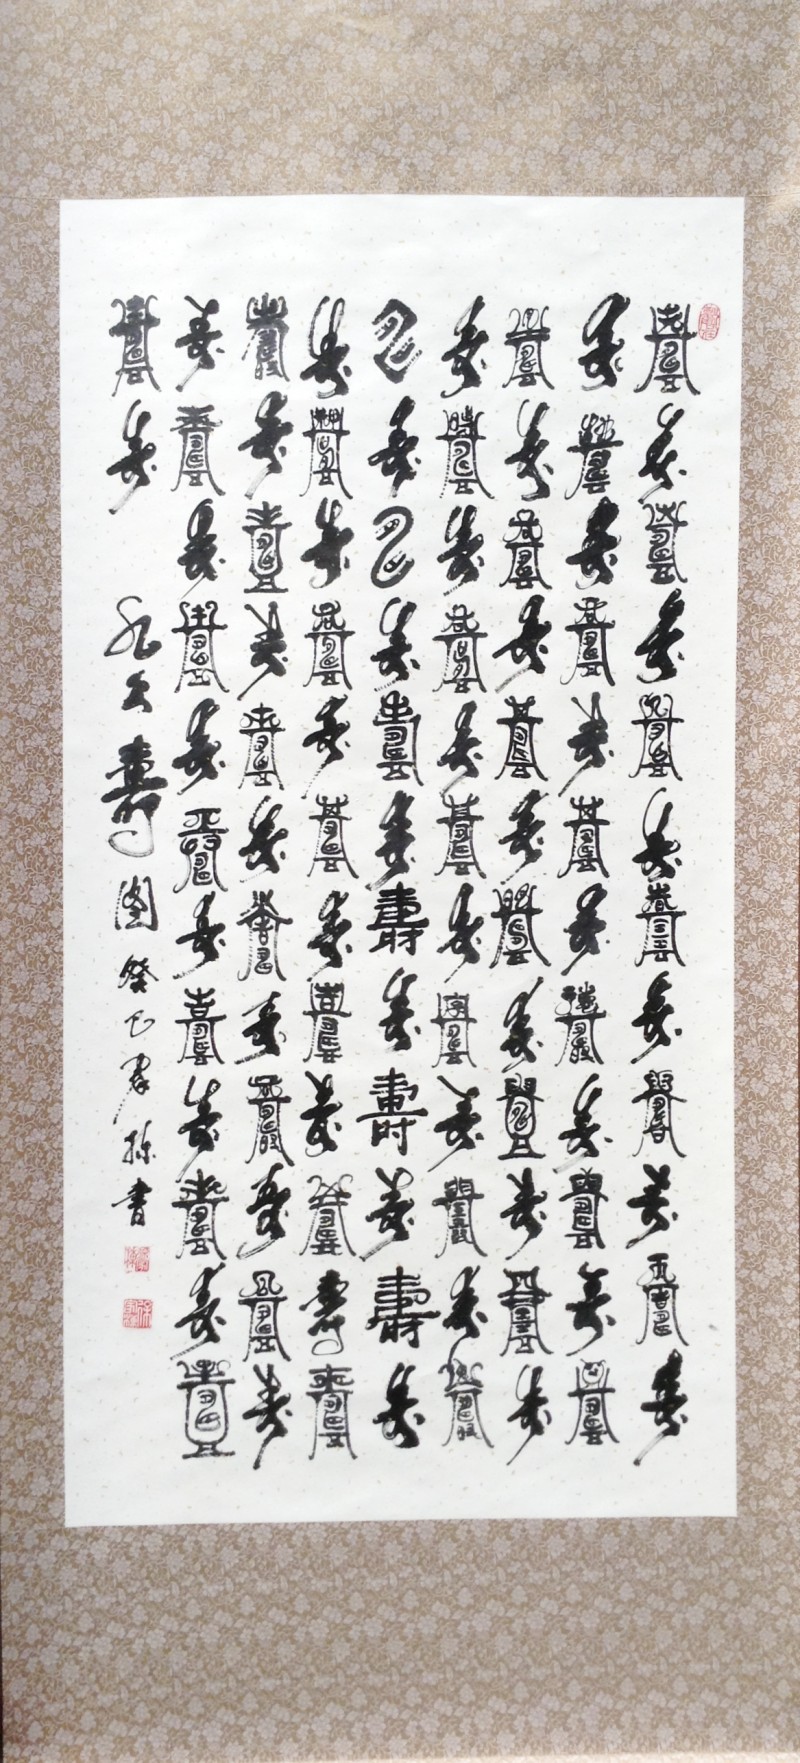 壽壽壽壽壽壽壽壽壽壽壽壽
壽壽壽壽壽壽壽壽壽壽壽壽
壽壽壽壽壽壽壽壽壽壽壽壽
壽壽壽壽壽壽壽壽壽壽壽壽
壽壽壽壽壽壽壽壽壽壽壽壽
壽壽壽壽壽壽壽壽壽壽壽壽
壽壽壽壽壽壽壽壽壽壽壽壽
壽壽壽壽壽壽壽壽壽壽壽壽
壽壽 九久壽圖 癸巳 書